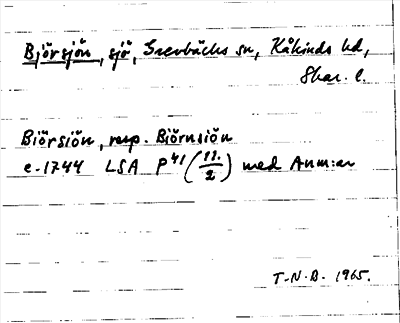 Björsjön, sjö, Sventbäcks sn, Kåkinds hd,
Skar. l.
Biörsiön, resp. Biörnsiön
e. 1744 LSA P41 (11./2) med Anm:ar
T-N-B- 1965.